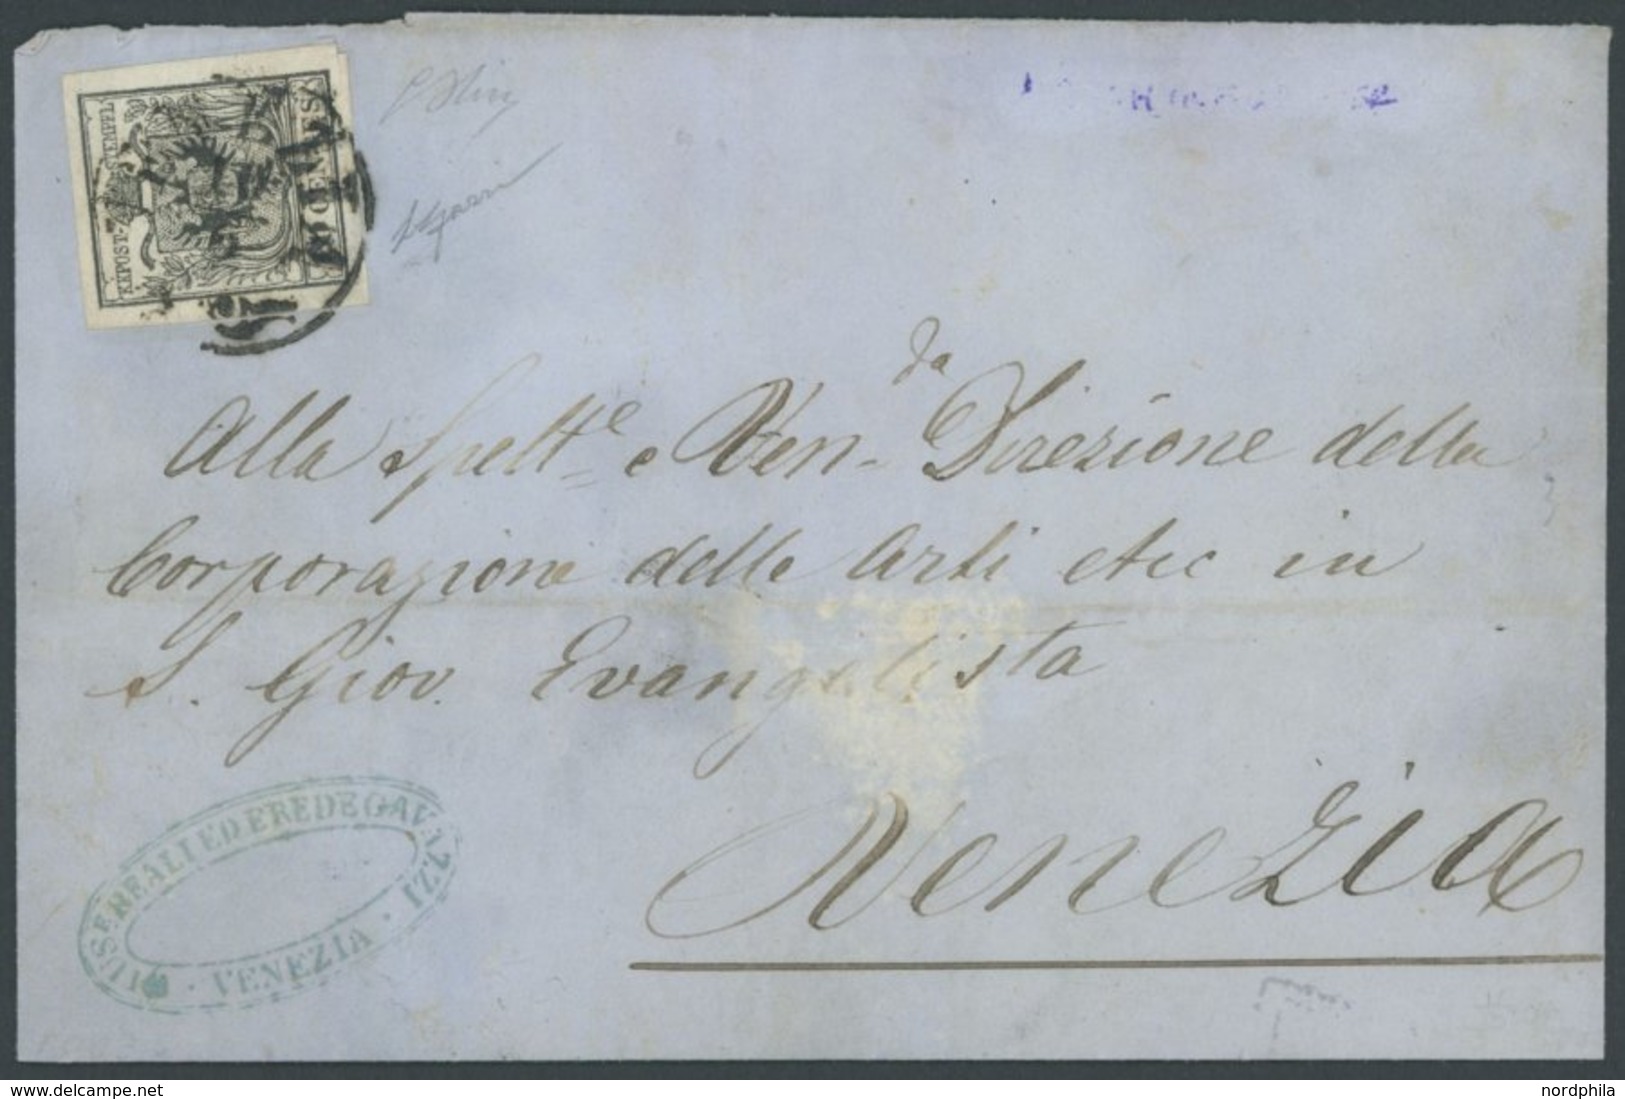 KKPOST-STEMPEL
10 CENTES
da
Alla Spelt.e e Ven. Direzione della
Corporazione delle Arti etc in
S. Giov. Evangelista
Venezia
GIUSE REALI ED EREDE GAVAZZI
· VENEZIA ·
www.delcampe.net
nordphila